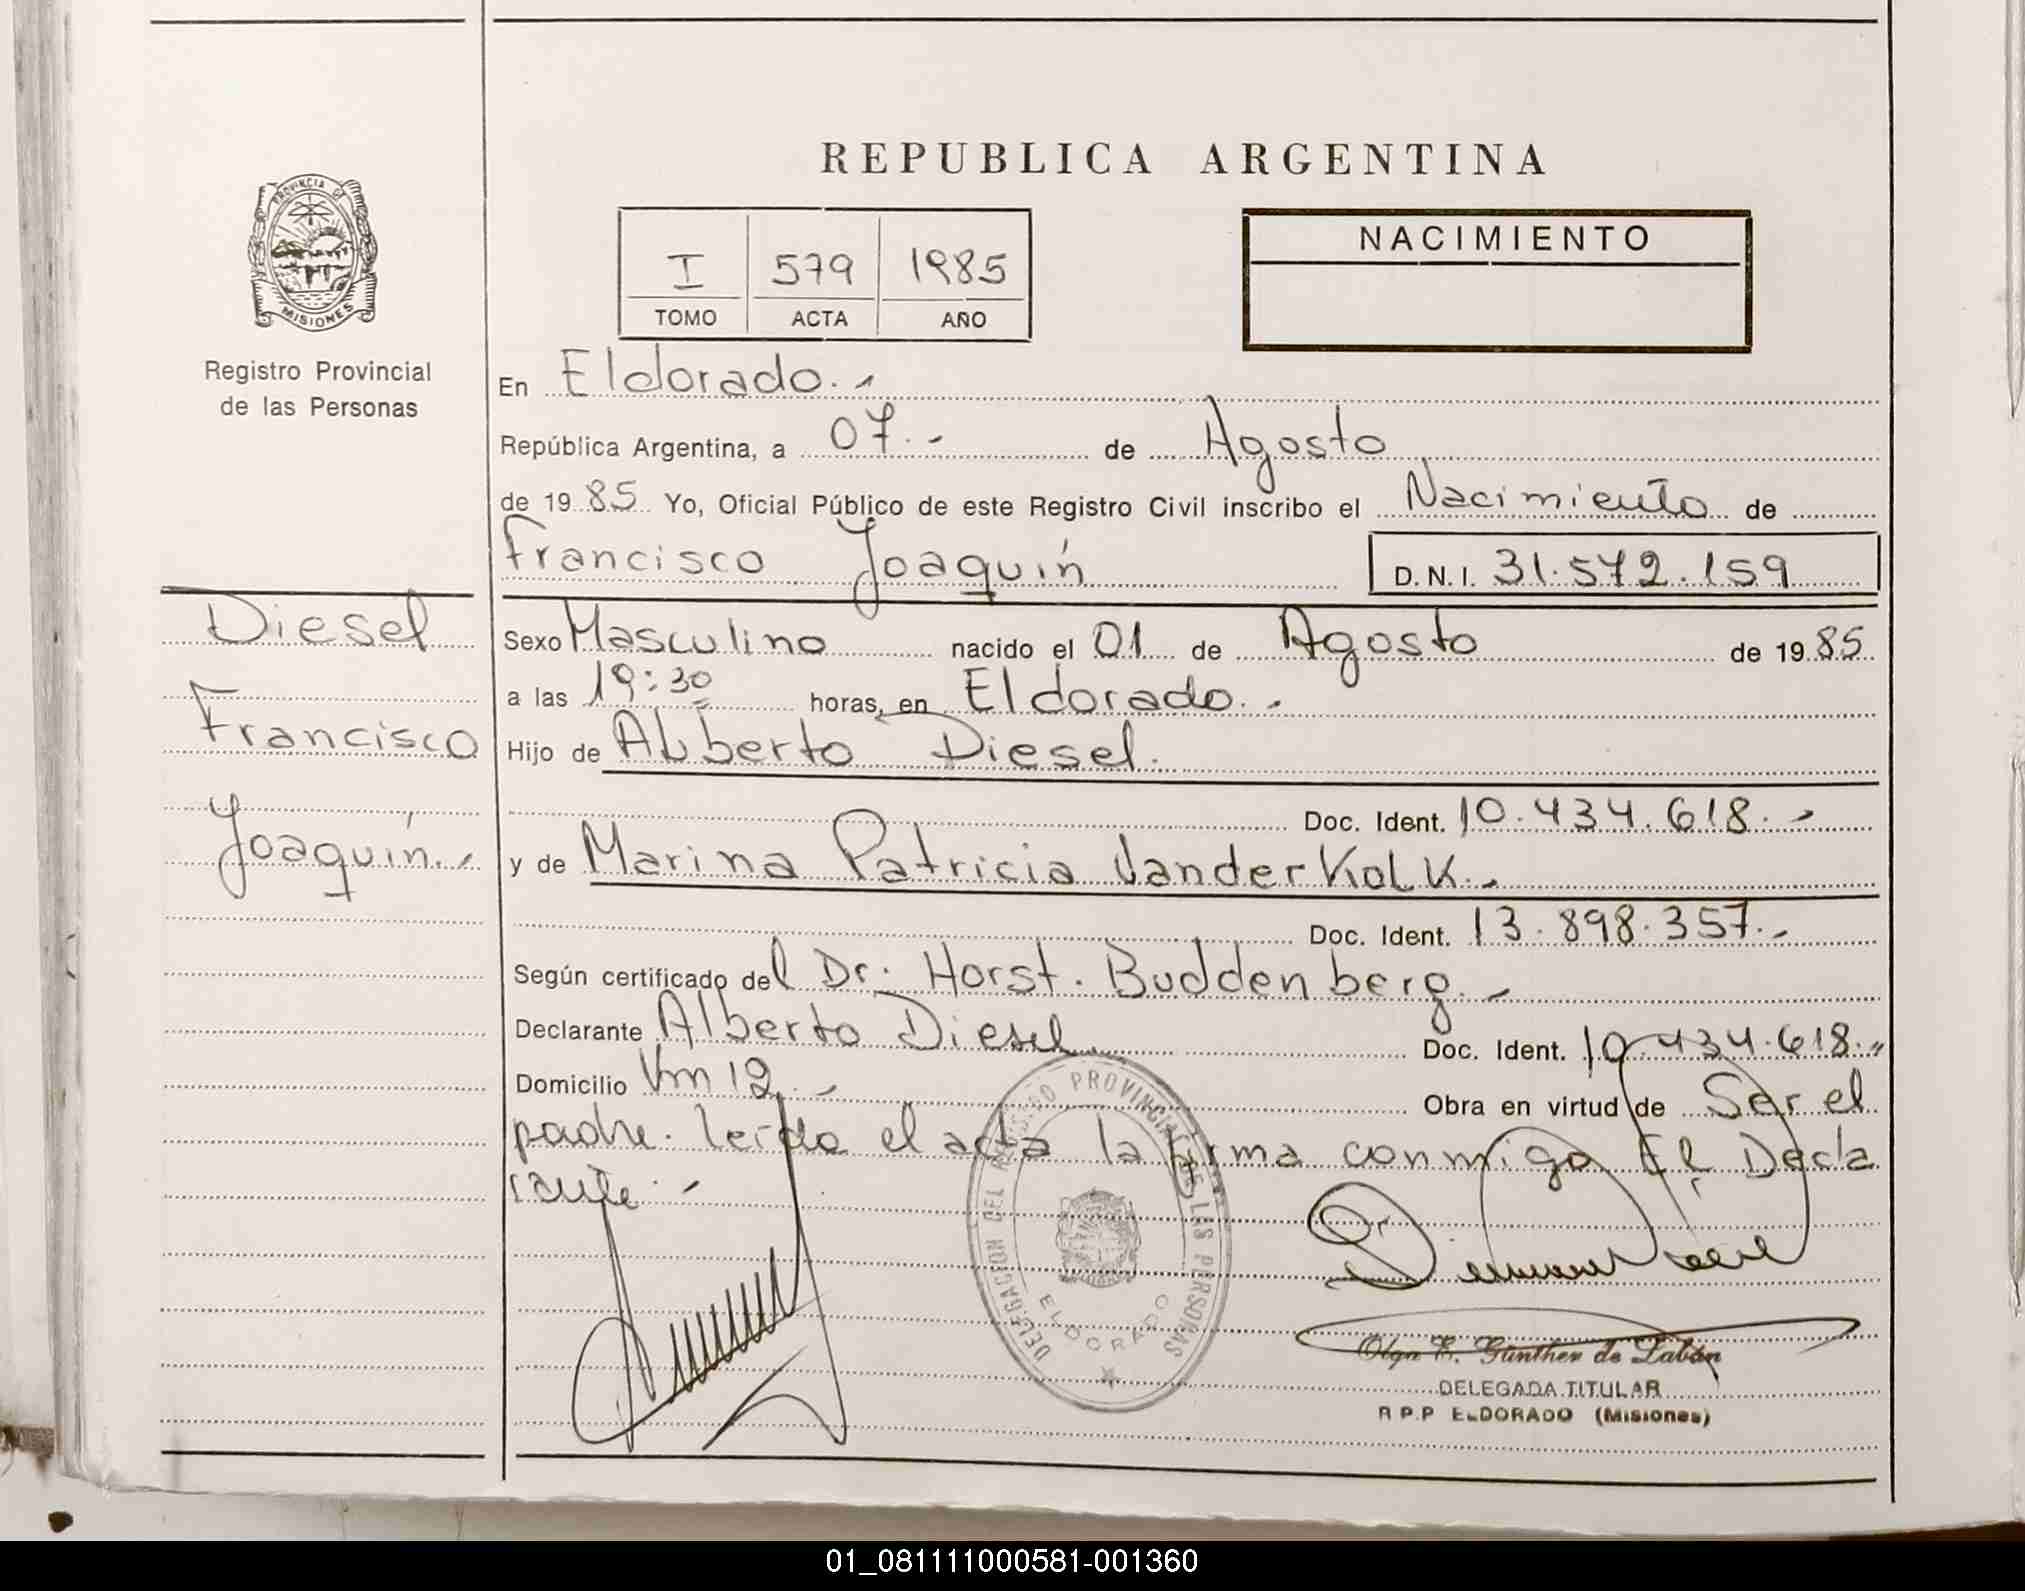 REPUBLICA ARGENTINA
PROVINCIA DE
MISIONES
Registro Provincial
de las Personas
I 579 1985
TOMO ACTA AÑO
NACIMIENTO
En Eldorado.-
República Argentina, a 07.- de Agosto
de 1985 Yo, Oficial Público de este Registro Civil inscribo el Nacimiento de
Francisco Joaquín D.N.I. 31.572.159
Diesel
Francisco
Joaquín.-
Sexo Masculino nacido el 01 de Agosto de 1985
a las 19:30 horas, en Eldorado.-
Hijo de Alberto Diesel.
Doc. Ident. 10.434.618.-
y de Marina Patricia Vanderkolk.-
Doc. Ident. 13.898.357.-
Según certificado del Dr. Horst. Buddenberg.-
Declarante Alberto Diesel Doc. Ident. 10.434.618.-
Domicilio Km 12.- Obra en virtud de Ser el
padre. Leída el acta la firma conmigo El Decla
rante.-
DELEGACION DEL REGISTRO PROVINCIAL DE LAS PERSONAS
ELDORADO
Olga E. Günther de Labán
DELEGADA TITULAR
R.P.P ELDORADO (Misiones)
01_081111000581-001360